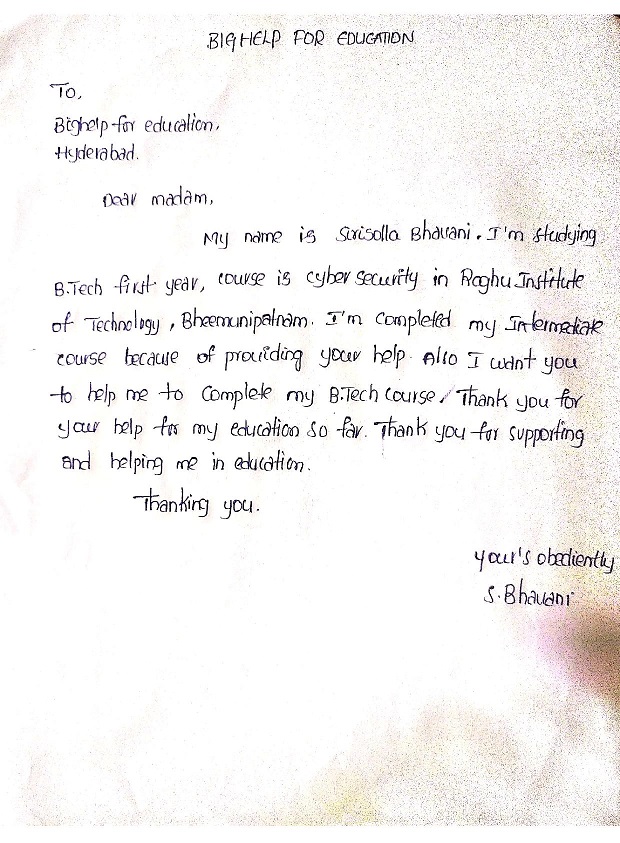 BIGHELP FOR EDUCATION
To,
Bighelp for education,
Hyderabad.
Dear madam,
My name is Sirisolla Bhavani. I'm studying
B.Tech first year, course is cyber security in Raghu Institute
of Technology, Bheemunipatnam. I'm completed my Intermediate
course because of providing your help. Also I want you
to help me to complete my B.Tech course. Thank you for
your help for my education so far. Thank you for supporting
and helping me in education.
Thanking you.
your's obediently
S. Bhavani